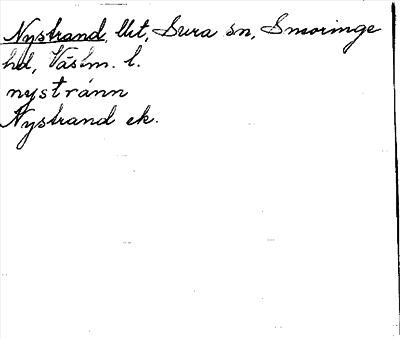 Nystrand, lht, Sura sn, Snevringe
hd, Västm. l.
nystránn
Nystrand ek.